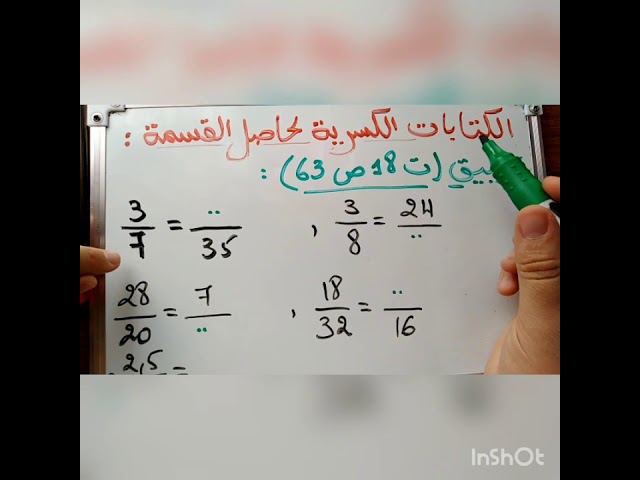 الكتابات الكسرية لحاصل القسمة :
بيق (ت 18 ص 63) :
3/7 = ../35 , 3/8 = 24/..
28/20 = 7/.. , 18/32 = ../16
2,5 =
InShOt